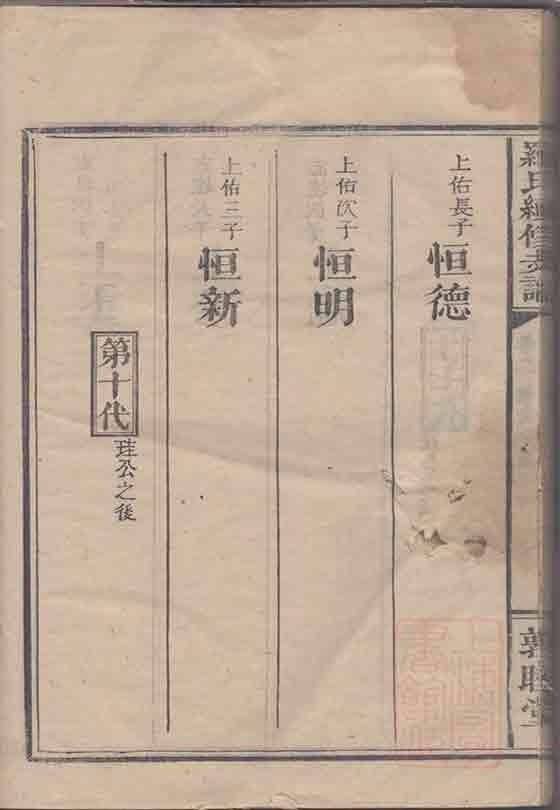 羅氏續修支譜
敦睦堂
上佑長子 恒德
上佑次子 恒明
上佑三子 恒新
第十代 珪公之後